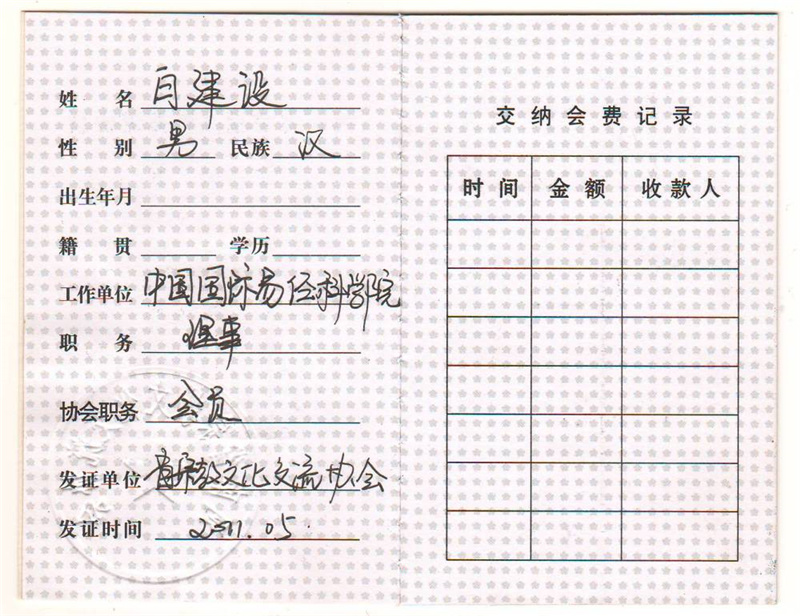 姓 名 闫建设
性 别 男 民族 汉
出生年月
籍 贯 学历
工作单位 中国国际易经科学院
职 务 理事
协会职务 会员
发证单位 文化交流协会
发证时间 2011.05
交纳会费记录
时 间 金 额 收 款 人